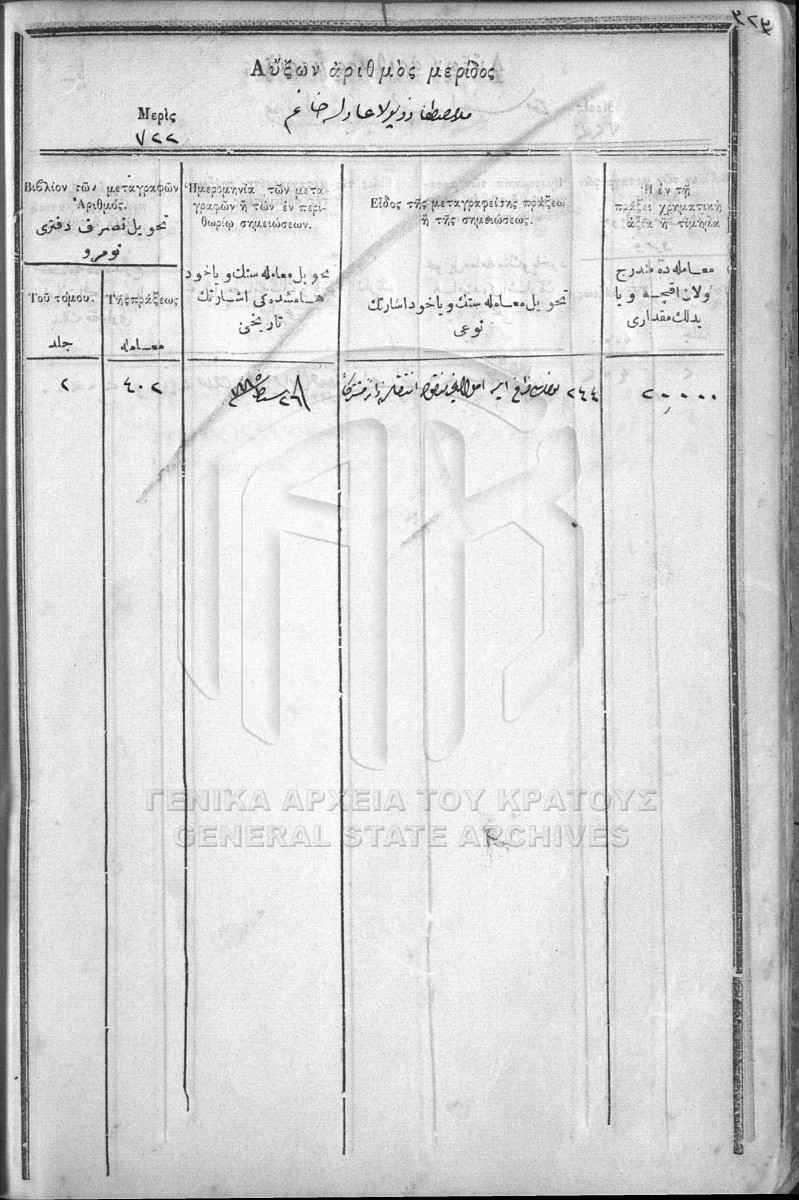 ٣٢٣
Αὔξων ἀριθμὸς μερίδος
Μερὶς
٧٢٢
Βιβλίον τῶν μεταγραφῶν
Ἀριθμός.
تحويل تصرف دفترى
نومرو
Τοῦ τόμου.
جلد
Τῆς πράξεως
معامله
Ἡμερομηνία τῶν μετα
γραφῶν ἢ τῶν ἐν περι
θωρίῳ σημειώσεων.
تحويل معامله سنك وياخود
هامشنده كى اشارتك
تاريخى
Εἶδος τῆς μεταγραφείσης πράξεως
ἢ τῆς σημειώσεως.
تحويل معامله سنك وياخود اشارتك
نوعى
Ἡ ἐν τῇ
πράξει χρηματικὴ
ἀξία ἢ τίμημα
معامله ده مندرج
اولان اقچه ويا
بدلك مقدارى
٢
٤٠٢
٢٤٤
٢٠,٠٠٠
ΓΕΝΙΚΑ ΑΡΧΕΙΑ ΤΟΥ ΚΡΑΤΟΥΣ
GENERAL STATE ARCHIVES